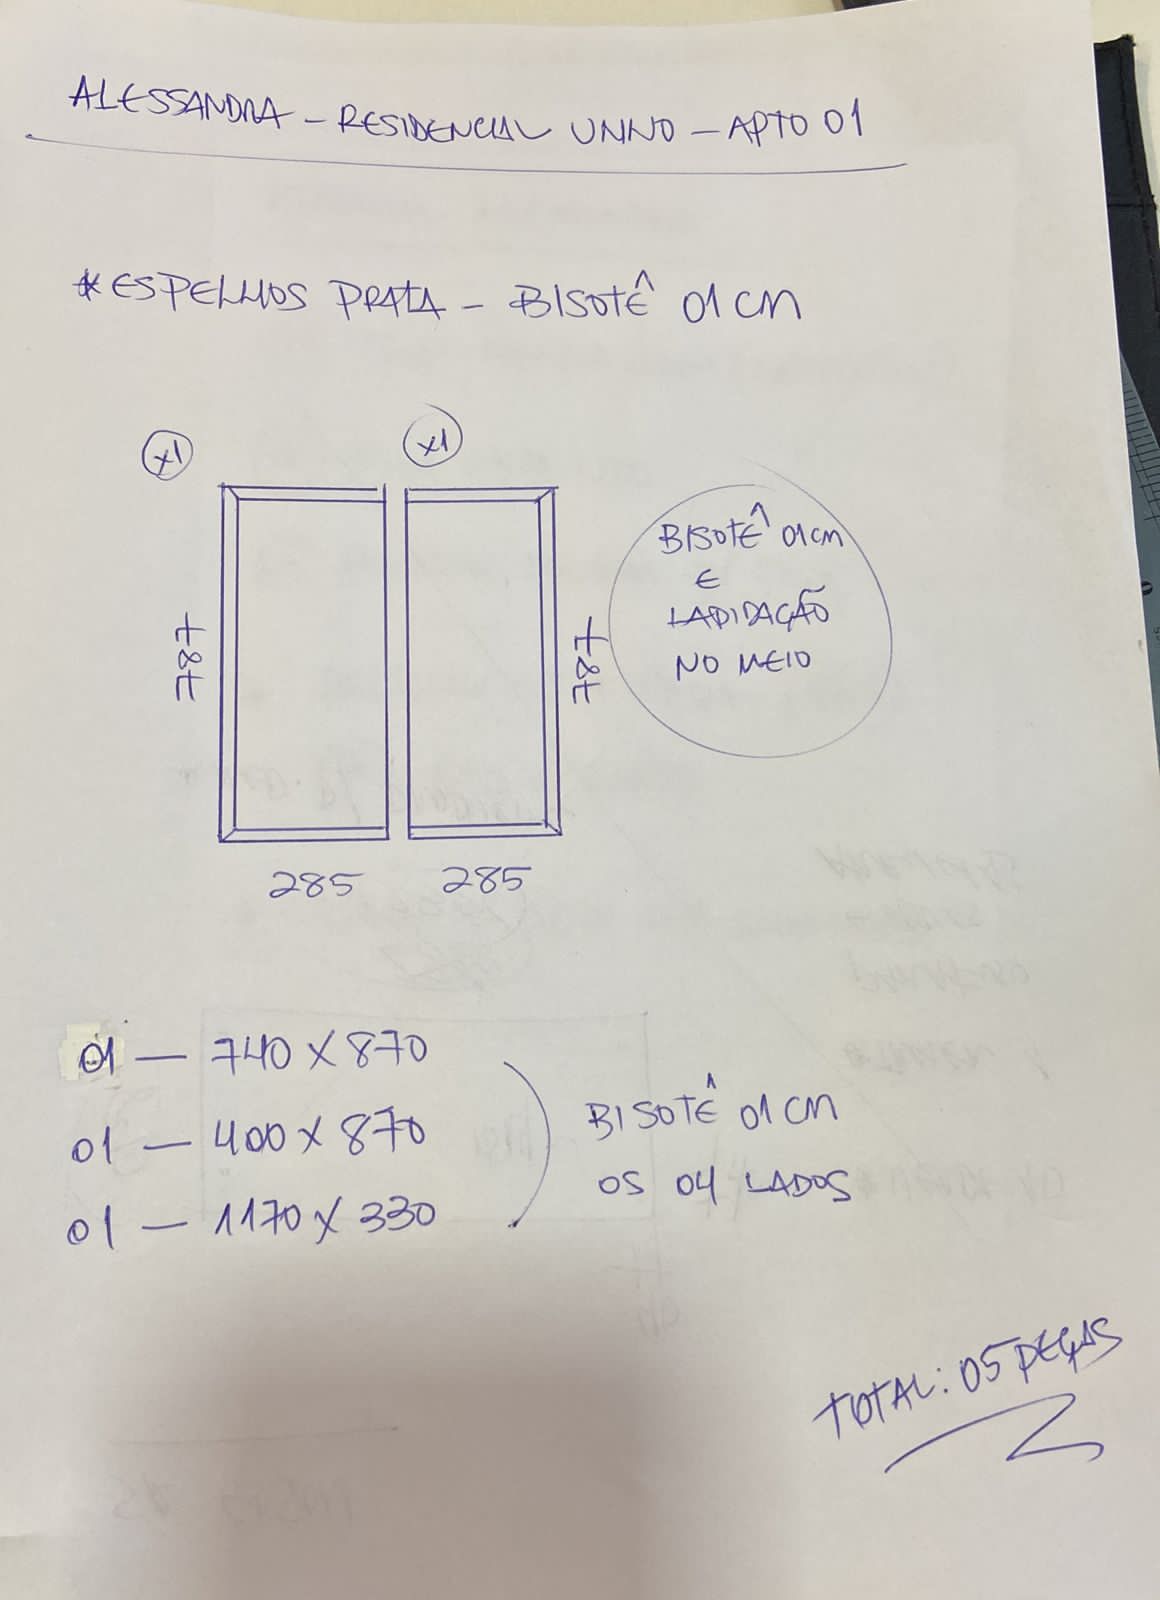 ALESSANDRA - RESIDENCIAL UNNO - APTO 01
* ESPELHOS PRATA - BISOTÊ 01 CM
x1 x1
BISOTÊ 01 CM
E
LAPIDAÇÃO
NO MEIO
787 787
285 285
01 — 740 X 870
01 — 400 X 870
01 — 1170 X 330
BISOTÊ 01 CM
OS 04 LADOS
TOTAL: 05 PEÇAS